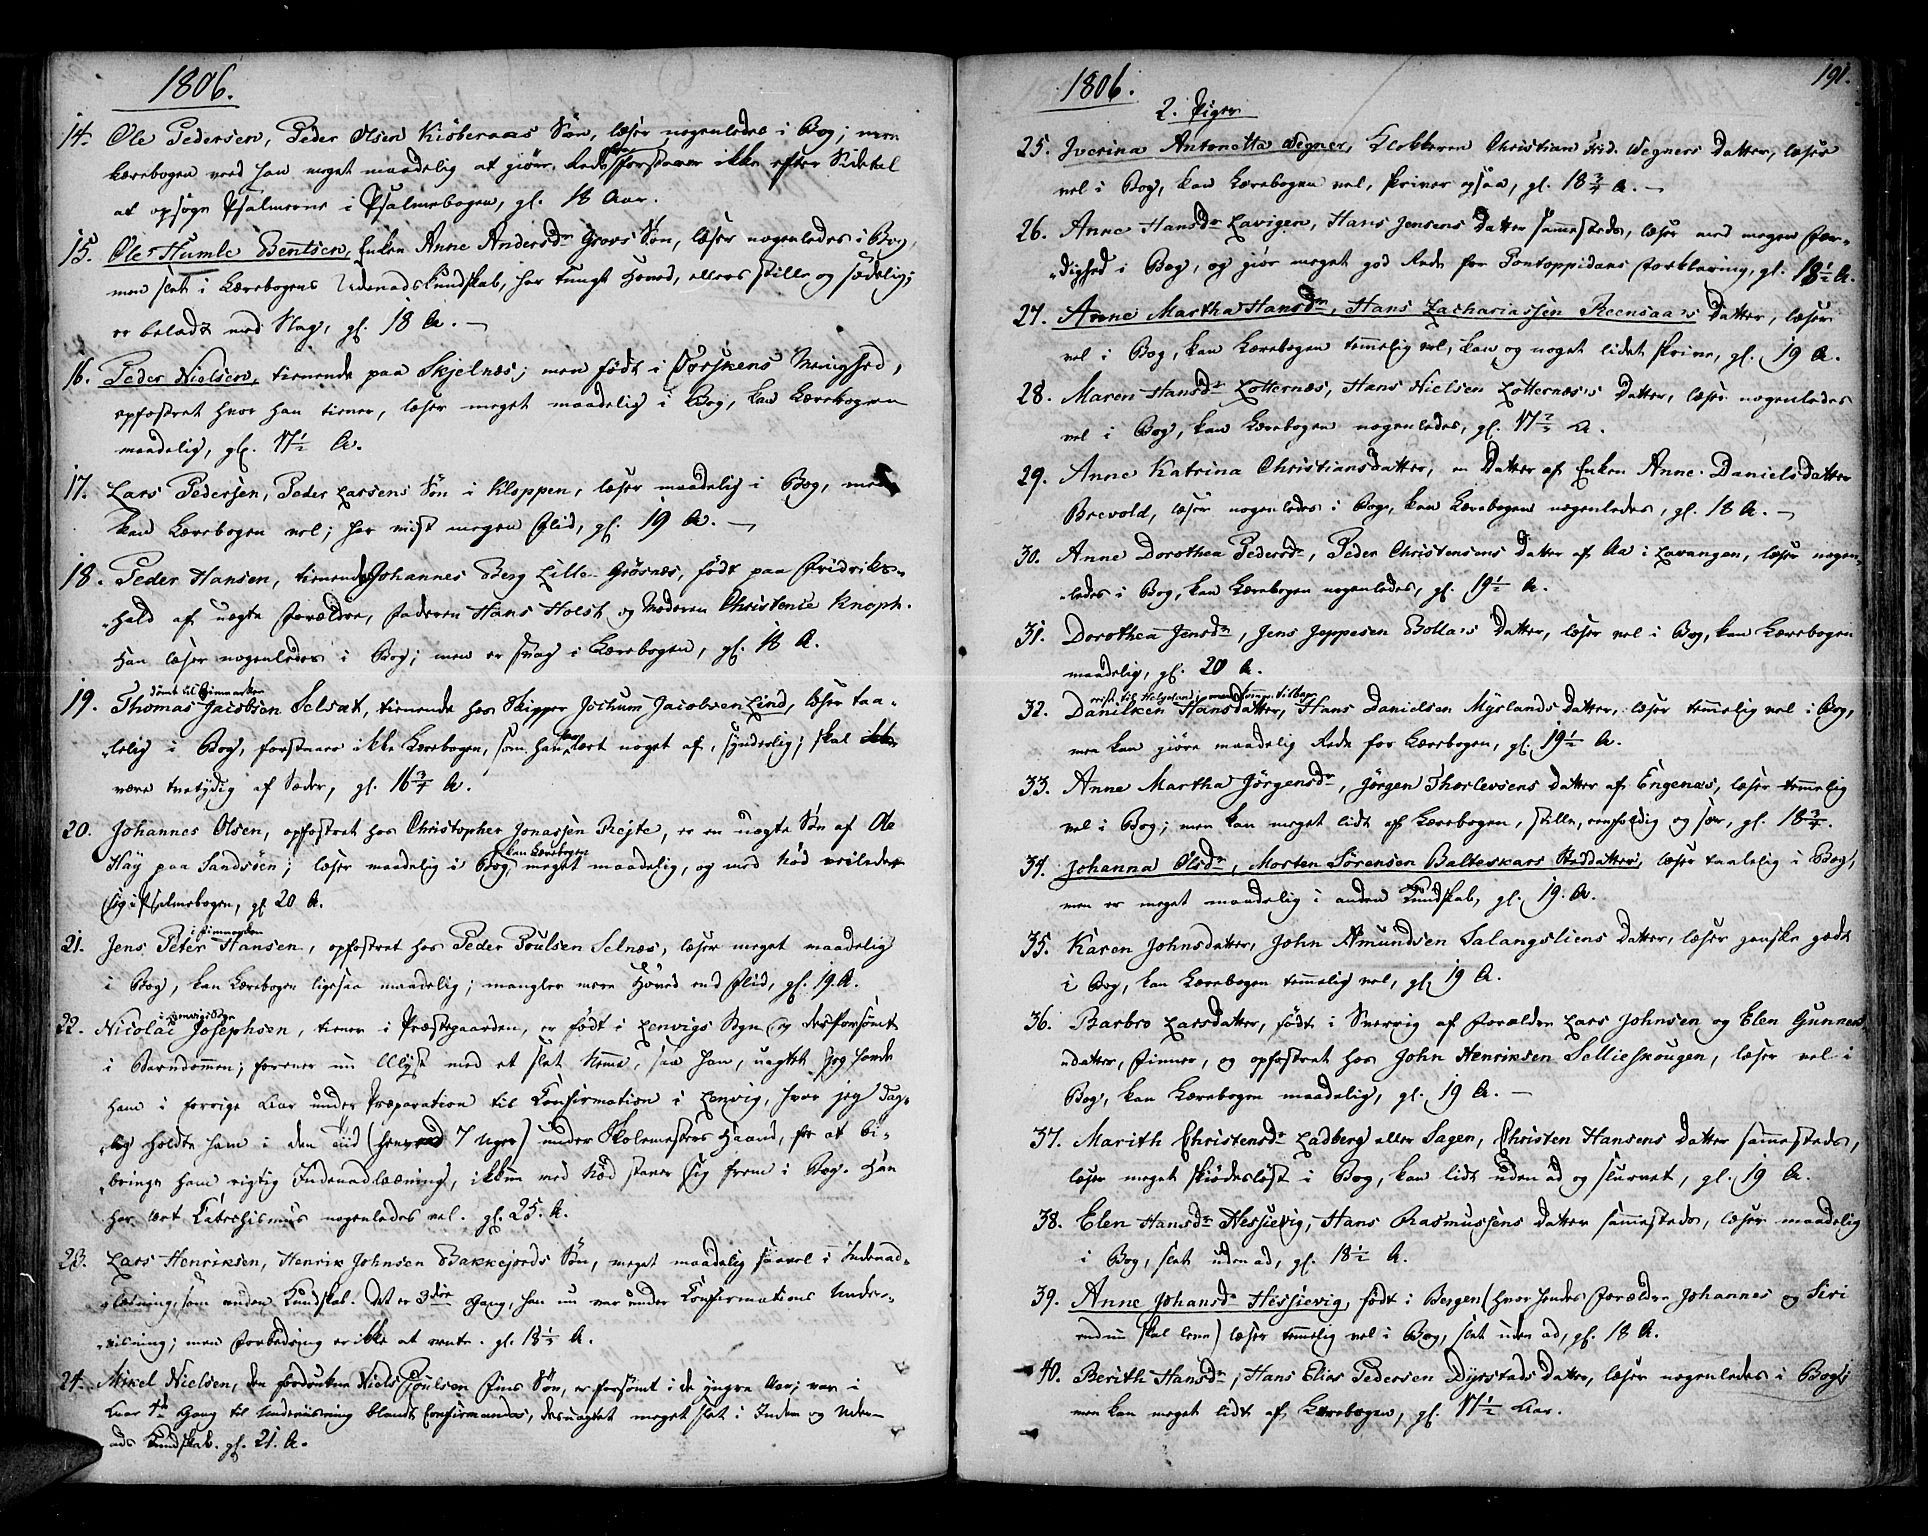 1806.
14. Ole Pedersen, Peder Olsen Kiöberaas Søn, læser nogenledes i Bog; men
Lærebogen veed han meget maadelig at giøre Rede for, forstaaer ikke efter Sidetal
at opsøge Psalmerne i Psalmebogen, gl. 18 Aar.
15. Ole Humle Bentsen, Enken Anne Andersdr Grovs Søn, læser nogenledes i Bog,
men slet i Lærebogens Udenadskundskab, har tungt Hoved, ellers stille og sædelig;
er beladt med Slag, gl. 18 A. —
16. Peder Nielsen, tienende paa Skjelnæs; men født i Torskens Menighed,
opfostret hvor han tiener, læser meget maadelig i Bog, kan Lærebogen
maadelig, gl. 17½ A.
17. Lars Pedersen, Peder Larsens Søn i Kloppen, læser maadelig i Bog, men
kan Lærebogen vel; har viist megen Flid, gl. 19 A. —
18. Peder Hansen, tienende Johannes Berg Lille-Grøsnæs, født paa Fridriks-
hald af uægte Forældre, Faderen Hans Holst og Moderen Christence Knoph.
Han læser nogenledes i Bog; men er svag i Lærebogen, gl. 18 A.
dømt til Finmarken
19. Thomas Jacobsen Selsæt, tienende hos Skipper Jochum Jacobsen Lind, læser taa-
lelig i Bog, forstaaer ikke Lærebogen, som han har lært noget af, synderlig; skal
være tvetydig af Sæder, gl. 16¾ A.
20. Johannes Olsen, opfostret hos Christopher Jonassen Rejte, er en uægte Søn af Ole
Häy paa Sandsöen; læser maadelig i Bog, kan Lærebogen meget maadelig, og med Nød veileder
sig i Psalmebogen, gl. 20 A.
i Finmarken
21. Jens Peter Hansen, opfostret hos Peder Poulsen Selnæs, læser meget maadelig
i Bog, kan Lærebogen ligesaa maadelig; mangler mere Hoved end Flid, gl. 19. A.
22. Nicolai Josephsen, tiener i Præstegaarden, er født i Lenvigs Sogn og der forsømt
i Barndommen; forener nu Ulyst med et slet Nemme, saa han, uagtet jeg havde
ham i forrige Aar under Præparation til Confirmation i Lenvig, hvor jeg dag-
lig holdte ham i den Tiid (henved 7 Uger) under Skolemesters Haand, for at bi-
bringe ham rigtig Indenadlæsning, ikkun med Nød staver sig frem i Bog. Han
har lært Catechismus nogenledes vel. gl. 25. A.
23. Lars Henriksen, Henrik Johnsen Bakkejords Søn, meget maadelig saavel i Indenad-
læsning, som anden Kundskab. Det er 3die Gang, han nu var under Confirmations Under-
viisning; men Forbedring er ikke at vente. gl. 18½ A.
24. Mikel Nielsen, den fordrukne Niels Poulsen Fins Søn, er forsømt i de yngre Aar; var i
Aar 1ste Gang til Underviisning blandt Confirmander, desuagtet meget slet i Inden og Uden-
ads Kundskab. gl. 21. A.
1806.
191.
2. Piger
25. Iverina Antonetta Wegner, Klokkeren Christian Frid. Wegners Datter, læser
vel i Bog, kan Lærebogen vel, skriver ogsaa, gl. 18¾ A. —
26. Anne Hansdr Lavigen, Hans Jensens Datter sammesteds, læser med megen Fær-
dighed i Bog, og giør meget god Rede for Pontoppidans Forklaring, gl. 18½ A.
27. Anne Martha Hansdr, Hans Zachariassen Reensaa's Datter, læser
vel i Bog, kan Lærebogen temmelig vel, kan og noget lidet skrive, gl. 19 A.
28. Maren Hansdr Lotternæs, Hans Nielsen Lotternæs's Datter, læser nogenledes
vel i Bog, kan Lærebogen nogenledes, gl. 17 A.
29. Anne Katrina Christiansdatter, en Datter af Enken Anne Danielsdatter
Brevold, læser nogenledes i Bog, kan Lærebogen nogenledes, gl. 18 A. —
30. Anne Dorothea Pedersdr, Peder Christensens Datter af Aa i Lavangen, læser nogen-
ledes i Bog, kan Lærebogen nogenledes, gl. 19½ A.
31. Dorothea Jensdr, Jens Jeppesen Bolla's Datter, læser vel i Bog, kan Lærebogen
maadelig, gl. 20 A.
reist til Helgeland; men kommen tilbage
32. Danilken Hansdatter, Hans Danielsen Myslands Datter, læser temmelig vel i Bog,
men kan giøre maadelig Rede for Lærebogen, gl. 19½ A.
33. Anne Martha Jørgensdr, Jørgen Thorlevsens Datter af Engenæs, læser temmelig
vel i Bog; men kan meget lidt af Lærebogen, stille, eenfoldig og sær, gl. 18¾.
34. Johanna Olsdr, Morten Sørensen Balteskars Steddatter, læser taalelig i Bog,
men er meget maadelig i anden Kundskab, gl. 19. A.
35. Karen Johnsdatter, John Amundsen Salangsliens Datter, læser ganske godt
i Bog, kan Lærebogen temmelig vel, gl. 19 A.
36. Barbro Larsdatter, født i Snervig af Forældre Lars Johnsen og Elen Gunners
datter, Finner, og opfostret hos John Henriksen Sellieskougen, læser vel i
Bog, kan Lærebogen maadelig, gl. 19 A. —
37. Marith Christensdr Ladberg eller Sagen, Christen Hansens Datter sammesteds,
læser meget skiødesløst i Bog, kan lidt uden ad og slurvet, gl. 19 A.
38. Elen Hansdr Hessievig, Hans Rasmussens Datter sammesteds, læser maadelig
i Bog, slet uden ad, gl. 18½ A.
39. Anne Johansdr Hessievig, født i Bergen (hvor hendes Forældre Johannes og Siri
endnu skal leve) læser temmelig vel i Bog, slet uden ad, gl. 18 A.
40. Berith Hansdr, Hans Elias Pedersen Dyrstads Datter, læser nogenledes i Bog;
men kan meget lidt af Lærebogen, gl. 17½ Aar.